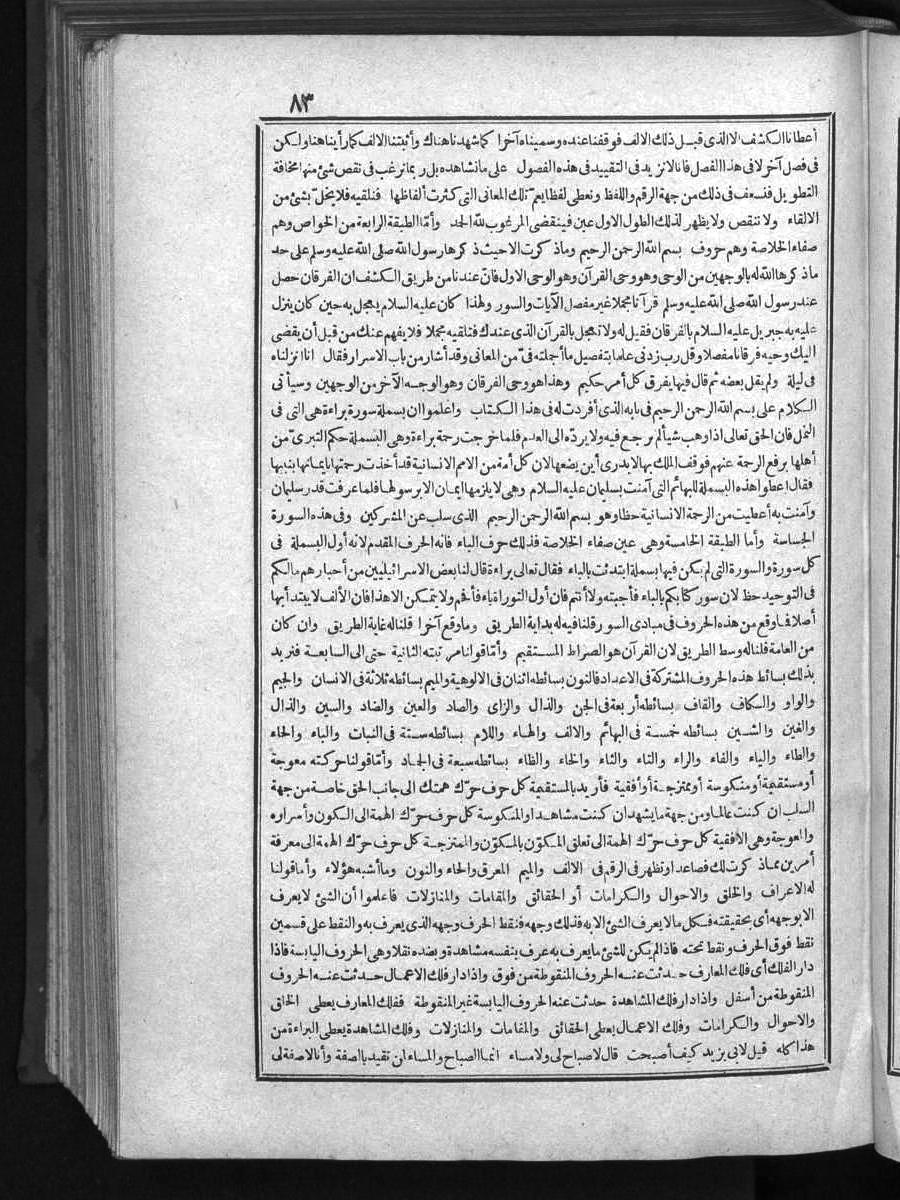 ٨٣
أعطانا الكشف الا الذى قبل ذلك الالف فوقفنا عنده وسميناه آخرا كما شهدنا هناك وأثبتنا الالف كما رأينا هنا ولكن
فى فصل آخر لا فى هذا الفصل فانا لا نزيد فى التقييد فى هذه الفصول على ما نشاهده بل ربما نرغب فى نقص شئ منها مخافة
التطويل فنسعف فى ذلك من جهة الرقم واللفظ ونعطى لفظا يعم تلك المعانى التى كثرت ألفاظها فنلقيه فلا يخل بشئ من
الالقاء ولا تنقص ولا يظهر لذلك الطول الاول عين فينقضى المرغوب لله الحمد وأما الطبقة الرابعة من الخواص وهم
صفاء الخلاصة وهم حروف بسم الله الرحمن الرحيم وما ذكرت الا حيث ذكرها رسول الله صلى الله عليه وسلم على حد
ما ذكرها الله له بالوجهين من الوحى وهو وحى القرآن وهو الوحى الاول فان عندنا من طريق الكشف ان الفرقان حصل
عند رسول الله صلى الله عليه وسلم قرآنا مجملا غير مفصل الآيات والسور ولهذا كان عليه السلام يعجل به حين كان ينزل
عليه به جبريل عليه السلام بالفرقان فقيل له ولا تعجل بالقرآن الذى عندك فتلقيه مجملا فلا يفهم عنك من قبل أن يقضى
اليك وحيه فرقانا مفصلا وقل رب زدنى علما بتفصيل ما أجملته فىّ من المعانى وقد أشار من باب الاسرار فقال انا انزلناه
فى ليلة ولم يقل بعضه ثم قال فيها يفرق كل أمر حكيم وهذا هو وحى الفرقان وهو الوجه الآخر من الوجهين وسيأتى
الكلام على بسم الله الرحمن الرحيم فى بابه الذى أفردت له فى هذا الكتاب واعلموا ان بسملة سورة براءة هى التى فى
النمل فان الحق تعالى اذا وهب شيأ لم يرجع فيه ولا يرده الى العدم فلما خرجت رحمة براءة وهى البسملة حكم التبرى من
أهلها برفع الرحمة عنهم فوقف الملك بها لا يدرى أين يضعها لان كل أمة من الامم الانسانية قد أخذت رحمتها بايمانها بنبيها
فقال اعطوا هذه البسملة للبهائم التى آمنت بسليمان عليه السلام وهى لا يلزمها ايمان الا برسولها فلما عرفت قدر سليمان
وآمنت به أعطيت من الرحمة الانسانية حظا وهو بسم الله الرحمن الرحيم الذى سلب عن المشركين وفى هذه السورة
الجساسة وأما الطبقة الخامسة وهى عين صفاء الخلاصة فذلك حرف الباء فانه الحرف المقدم لانه أول البسملة فى
كل سورة والسورة التى لم يكن فيها بسملة ابتدئت بالباء فقال تعالى براءة قال لنا بعض الاسرائيليين من أحبارهم مالكم
فى التوحيد حظ لان سور كتابكم بالباء فأجبته ولا أنتم فان أول التوراة باء فأفحم ولا يتمكن الا هذا فان الألف لا يبتدأ بها
أصلا فما وقع من هذه الحروف فى مبادى السور قلنا فيه له بداية الطريق وما وقع آخرا قلنا له غاية الطريق وان كان
من العامة قلنا له وسط الطريق لان القرآن هو الصراط المستقيم وأما قولنا مرتبته الثانية حتى الى السابعة فنريد
بذلك بسائط هذه الحروف المشتركة فى الاعداد فالنون بسائطه اثنان فى الالوهية والميم بسائطه ثلاثة فى الانسان والجيم
والواو والكاف والقاف بسائطه أربعة فى الجن والذال والزاى والصاد والعين والضاد والسين والذال
والغين والشين بسائطه خمسة فى البهائم والالف والهاء واللام بسائطه ستة فى النبات والباء والحاء
والطاء والياء والفاء والراء والتاء والثاء والخاء والظاء بسائطه سبعة فى الجماد وأما قولنا حركته معوجة
أو مستقيمة أو منكوسة أو ممتزجة أو أفقية فأريد بالمستقيمة كل حرف حرّك همتك الى جانب الحق خاصة من جهة
السلب ان كنت عالما ومن جهة ما يشهد ان كنت مشاهدا والمنكوسة كل حرف حرّك الهمة الى الكون وأسراره
والمعوجة وهى الافقية كل حرف حرّك الهمة الى تعلق المكوّن بالمكوّن والممتزجة كل حرف حرّك الهمة الى معرفة
أمرين مما ذكرت لك فصاعدا وتظهر فى الرقم فى الالف والميم المعرق والحاء والنون وما أشبه هؤلاء وأما قولنا
له الاعراف والخلق والاحوال والكرامات أو الحقائق والمقامات والمنازلات فاعلموا أن الشئ لا يعرف
الا بوجهه أى بحقيقته فكل ما لا يعرف الشئ الا به فذلك وجهه فنقط الحرف وجهه الذى يعرف به والنقط على قسمين
نقط فوق الحرف ونقط تحته فاذا لم يكن للشئ ما يعرف به عرف بنفسه مشاهدة وبضده نقلا وهى الحروف اليابسة فاذا
دار الفلك أى فلك المعارف حدثت عنه الحروف المنقوطة من فوق واذا دار فلك الاعمال حدثت عنه الحروف
المنقوطة من أسفل واذا دار فلك المشاهدة حدثت عنه الحروف اليابسة غير المنقوطة ففلك المعارف يعطى الخلق
والاحوال والكرامات وفلك الاعمال يعطى الحقائق والمقامات والمنازلات وفلك المشاهدة يعطى البراءة من
هذا كله قيل لابى يزيد كيف أصبحت قال لا صباح لى ولا مساء انما الصباح والمساء لمن تقيد بالصفة وأنا لا صفة لى